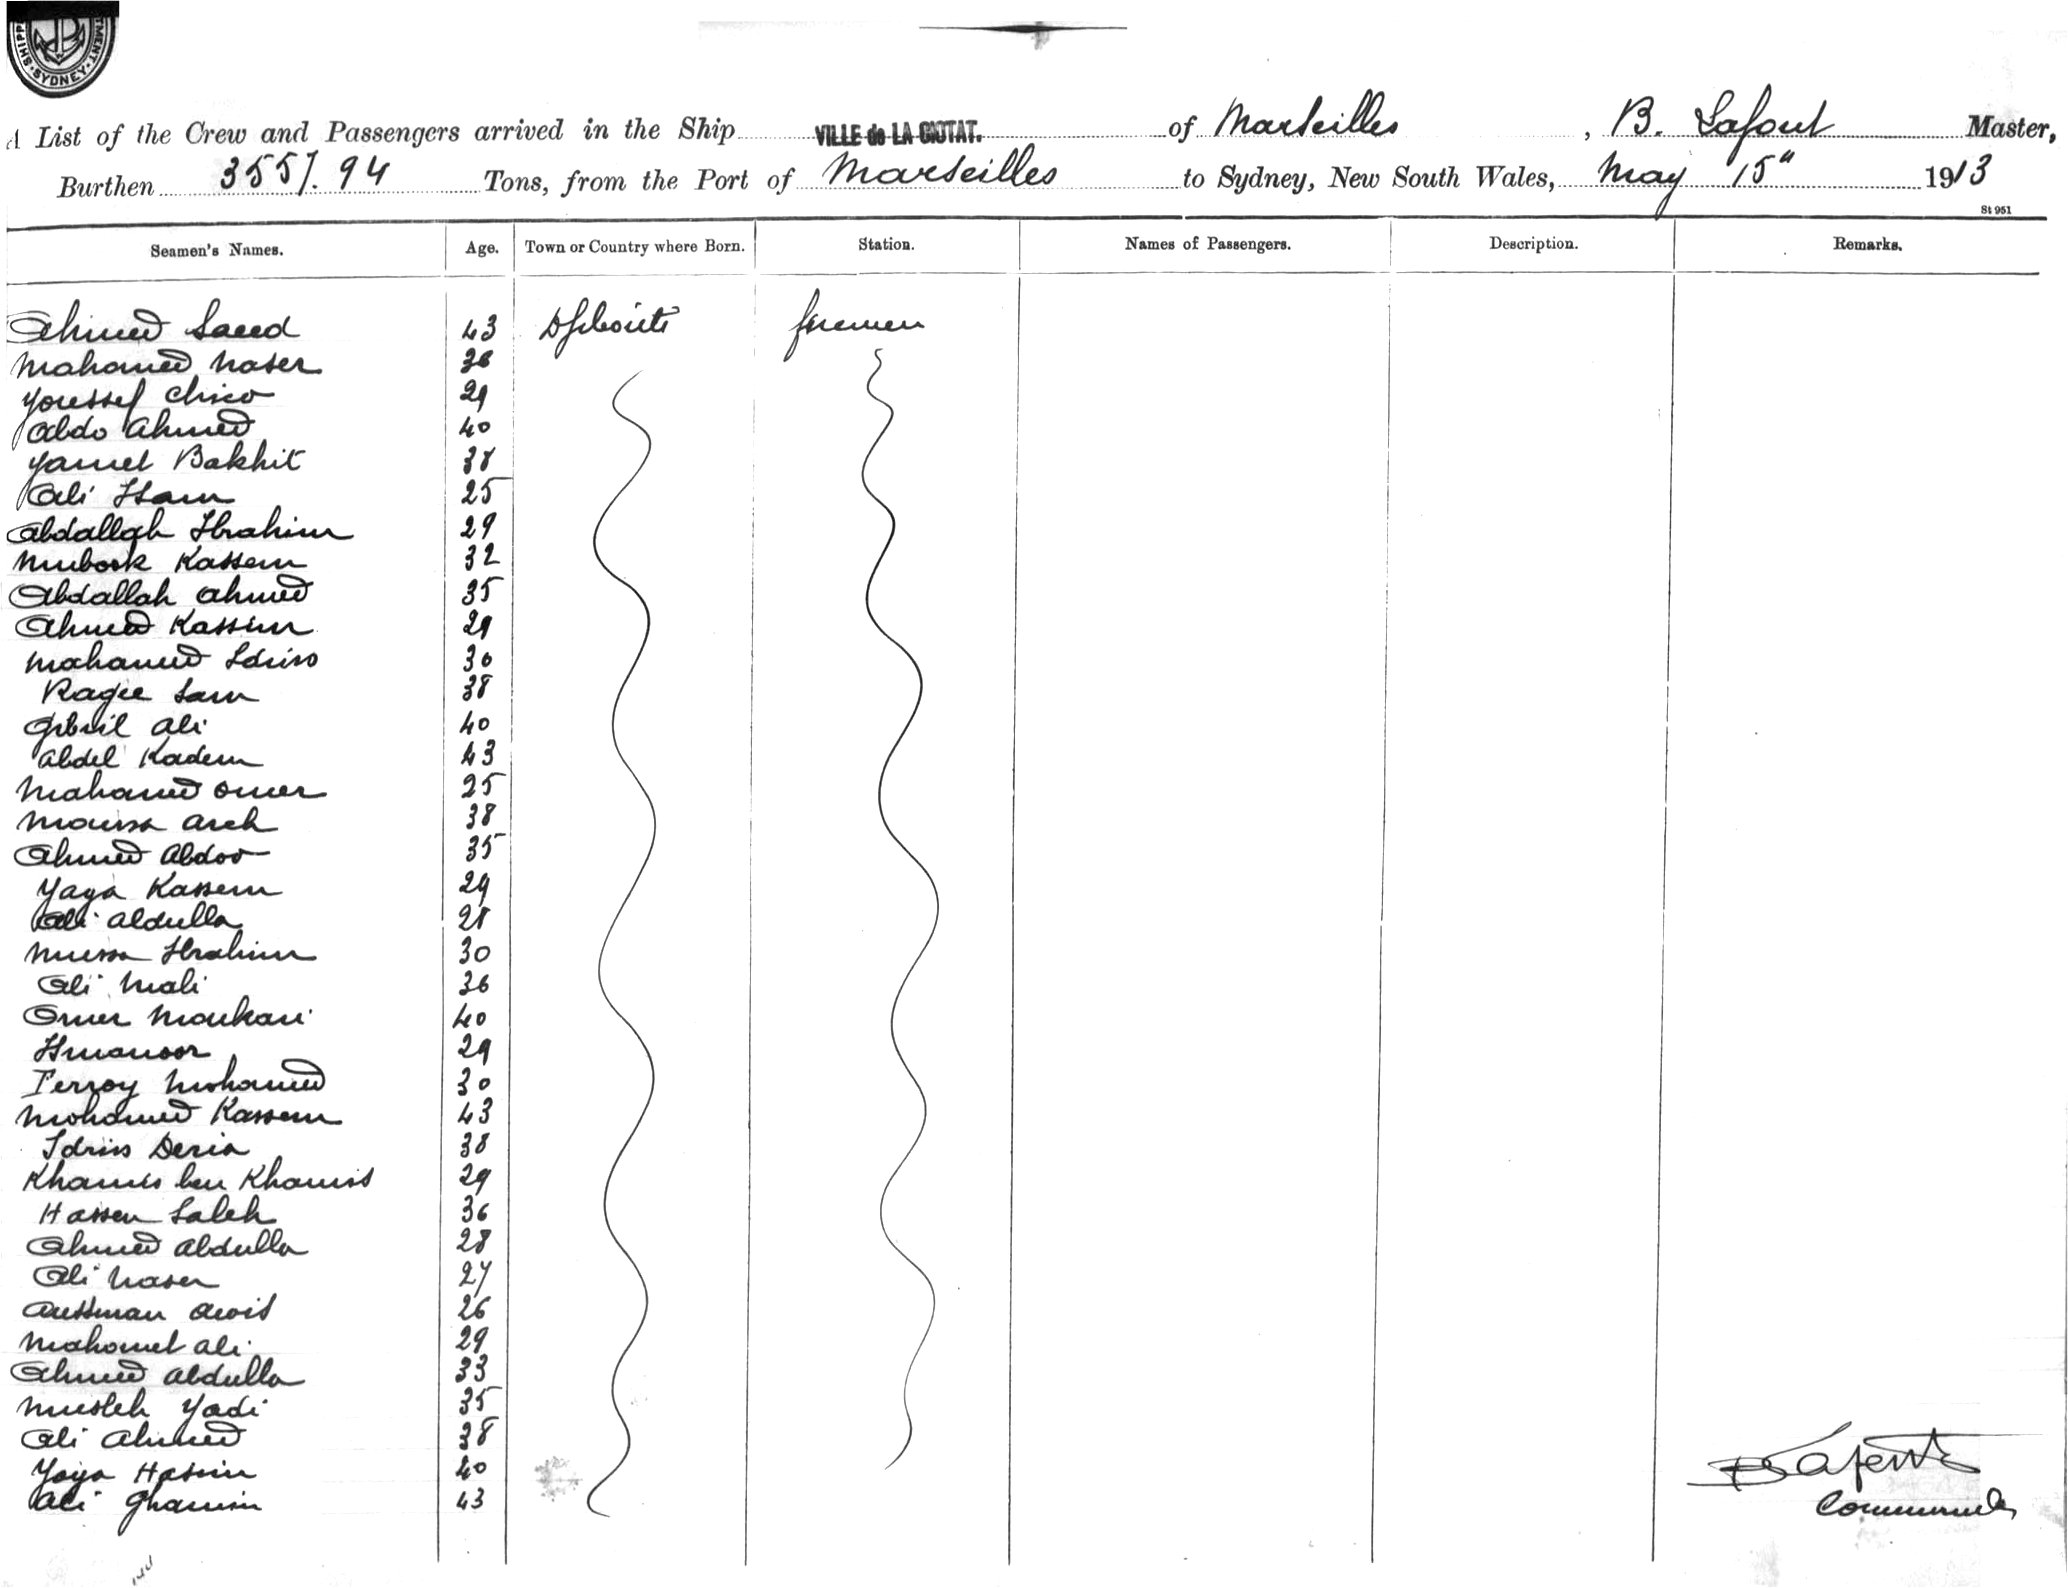 SHIPP SYDNEY MENT
A List of the Crew and Passengers arrived in the Ship VILLE de LA CIOTAT. of Marseilles, B. Lafont Master,
Burthen 3557.94 Tons, from the Port of Marseilles to Sydney, New South Wales, May 15" 1913
St 951
Seamen's Names. Age. Town or Country where Born. Station. Names of Passengers. Description. Remarks.
Ahmed Saeed 43 Djibouti firemen
Mahomed Naser 36
Youssef Chico 29
Abdo Ahmed 40
Yamel Bakhit 38
Ali Isam 25
Abdallah Ibrahim 29
Mubork Kassem 32
Abdallah Ahmed 35
Ahmed Kassim 29
Mahamed Idriss 30
Ragee Sam 38
Gibril Ali 40
Abdel Kadem 43
Mahamed Omer 25
Moussa Areh 38
Ahmed Abdoo 35
Yaya Kassem 29
Ali Abdulla 28
Mussa Ibrahim 30
Ali Mali 36
Omer Moukari 40
29
Ferroy Mohamed 30
Mohamed Kassem 43
Idriss Deria 38
Khamis ben Khamis 29
Hassen Saleh 36
Ahmed Abdulla 28
Ali Naser 27
Aussman Awis 26
Mahomet Ali 29
Ahmed Abdulla 33
Musleh Yadi 35
Ali Ahmed 38
Yaya Hassin 40
Ali Ghamim 43
B Lafont